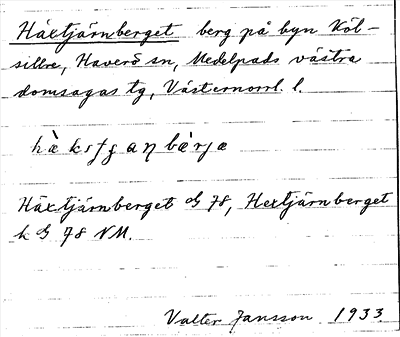 Häxtjärnberget berg på byn Köl-
sillre, Haverö sn, Medelpads västra
domsagas tg, Västernorrl. l.
Häxtjärnberget GS 78, Hextjärnberget
k G 78 NM.
Valter Jansson 1933.